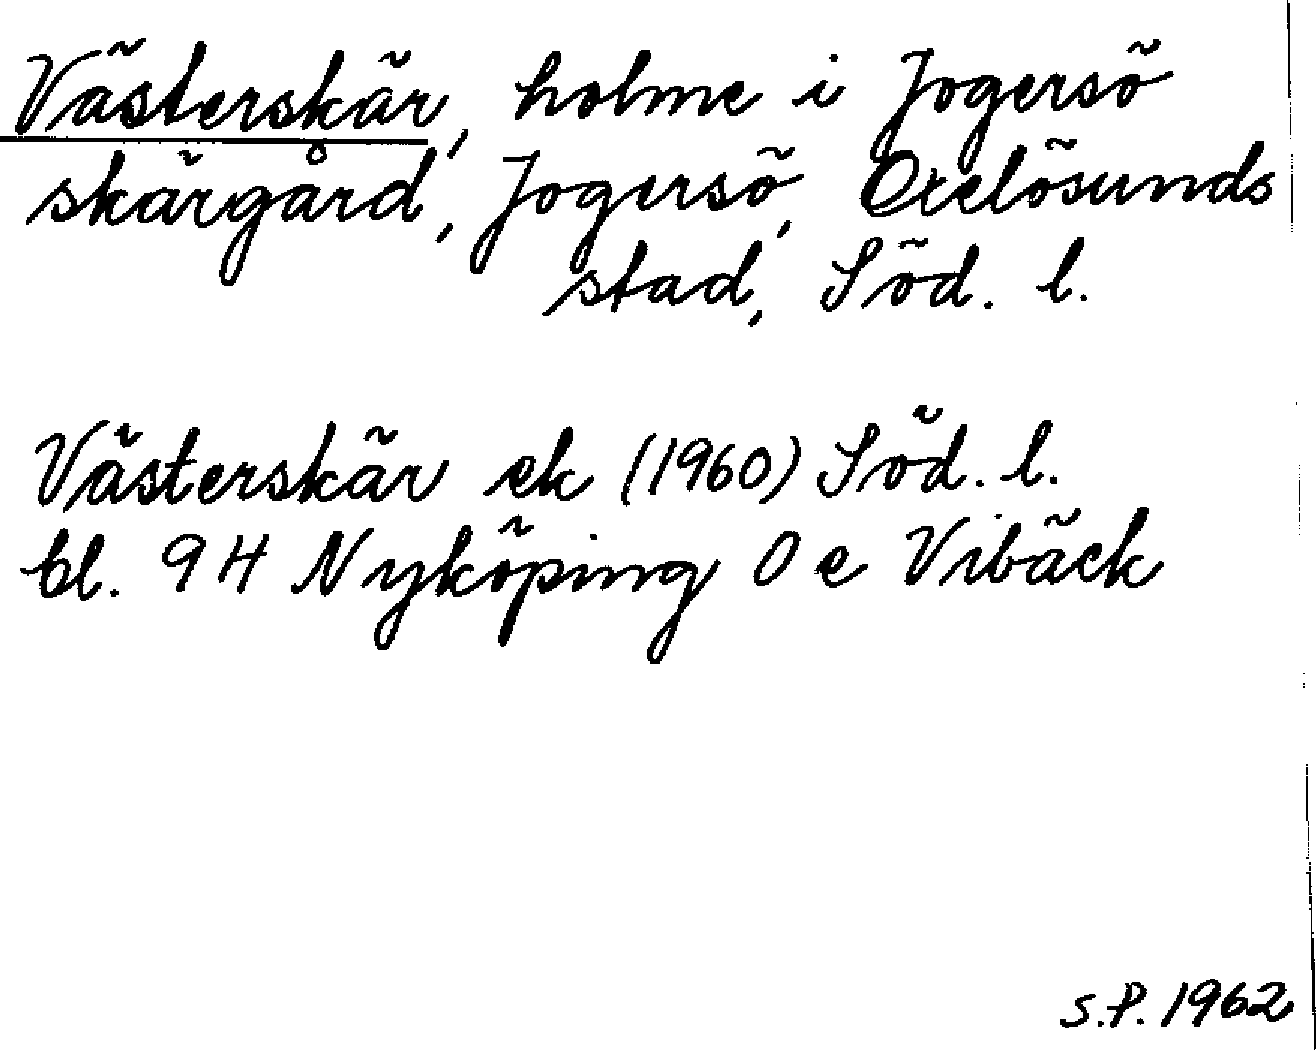 Västerskär, holme i Jogersö
skärgård, Jogersö, Oxelösunds
stad, Söd. l.
Västerskär ek (1960) Söd. l.
bl. 9 H Nyköping O e Vibäck
S.P. 1962